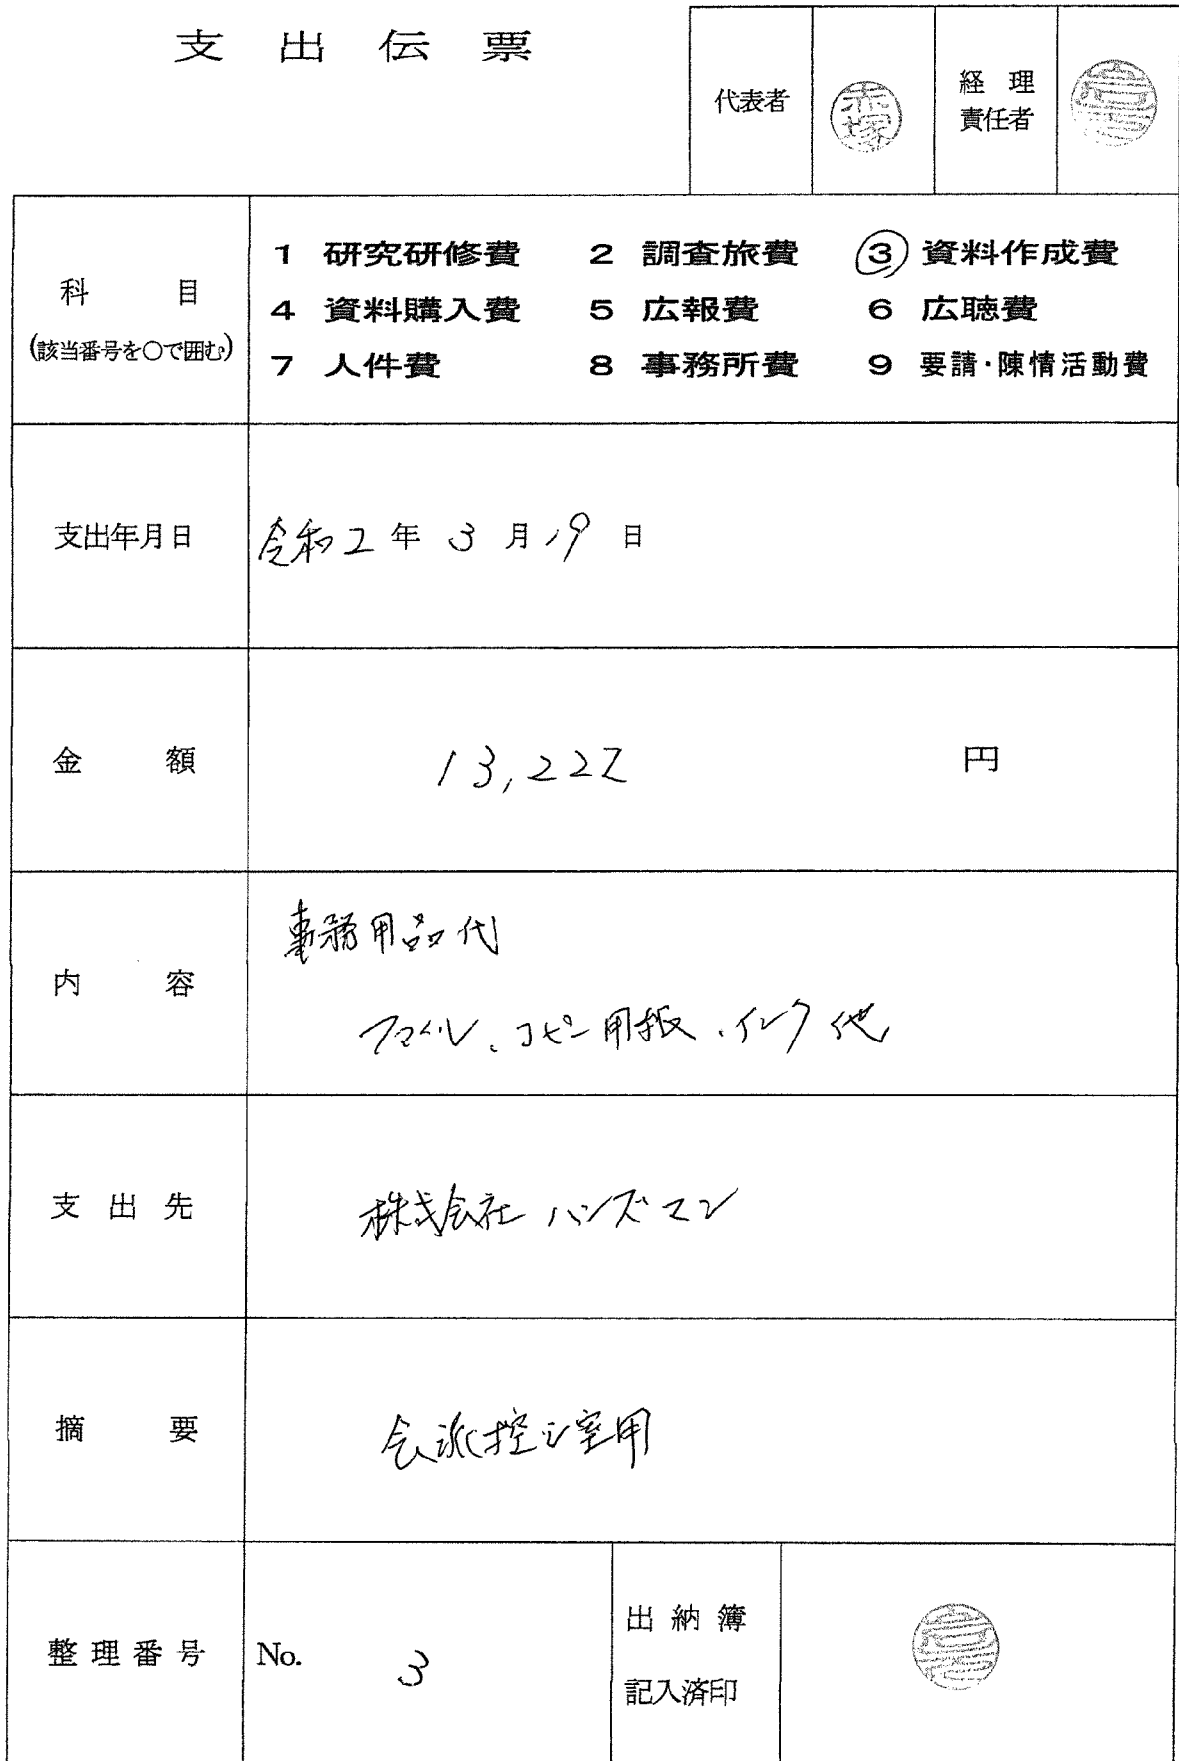 支出伝票
代表者
赤塚
経理
責任者
科目
(該当番号を○で囲む)
1 研究研修費 2 調査旅費 ③ 資料作成費
4 資料購入費 5 広報費 6 広聴費
7 人件費 8 事務所費 9 要請・陳情活動費
支出年月日
令和2年3月19日
金額
13,227 円
内容
事務用品代
ファイル、コピー用紙、インク他
支出先
株式会社ハンズマン
摘要
会派控え室用
整理番号
No. 3
出納簿
記入済印